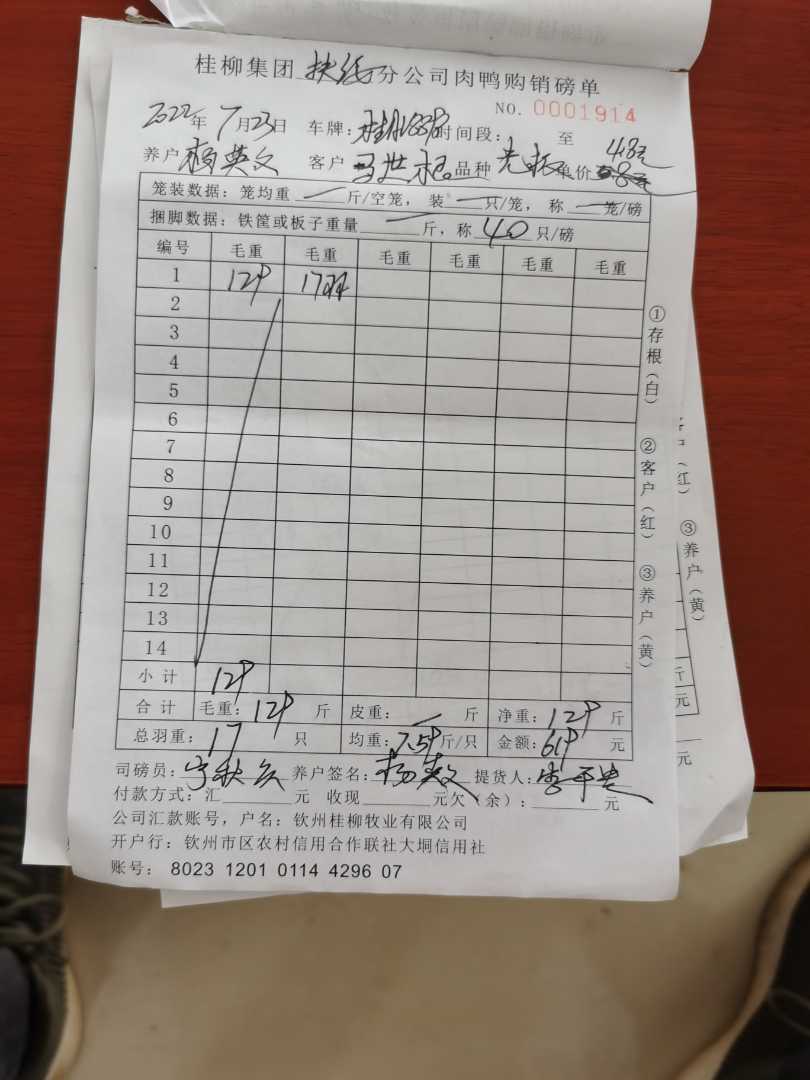 桂柳集团 扶绥 分公司肉鸭购销磅单
NO. 0001914
2022年 7月23日 车牌: 时间段: 至
养户 杨英文 客户 品种 单价 4.8元
笼装数据: 笼均重 一 斤/空笼, 装 一 只/笼, 称 一 笼/磅
捆脚数据: 铁筐或板子重量 一 斤, 称 40 只/磅
编号 毛重 毛重 毛重 毛重 毛重 毛重
1 129 17羽
2
3
4
5
6
7
8
9
10
11
12
13
14
小计 129
合计 毛重: 129 斤 皮重: 一 斤 净重: 129 斤
总羽重: 17 只 均重: 7.59 斤/只 金额: 619 元
司磅员: 养户签名: 杨英文 提货人:
付款方式: 汇 元 收现 元欠(余): 元
公司汇款账号, 户名: 钦州桂柳牧业有限公司
开户行: 钦州市区农村信用合作联社大垌信用社
账号: 8023 1201 0114 4296 07
①存根(白)
②客户(红)
③养户(黄)
户(红)
③养户(黄)
斤
元
元